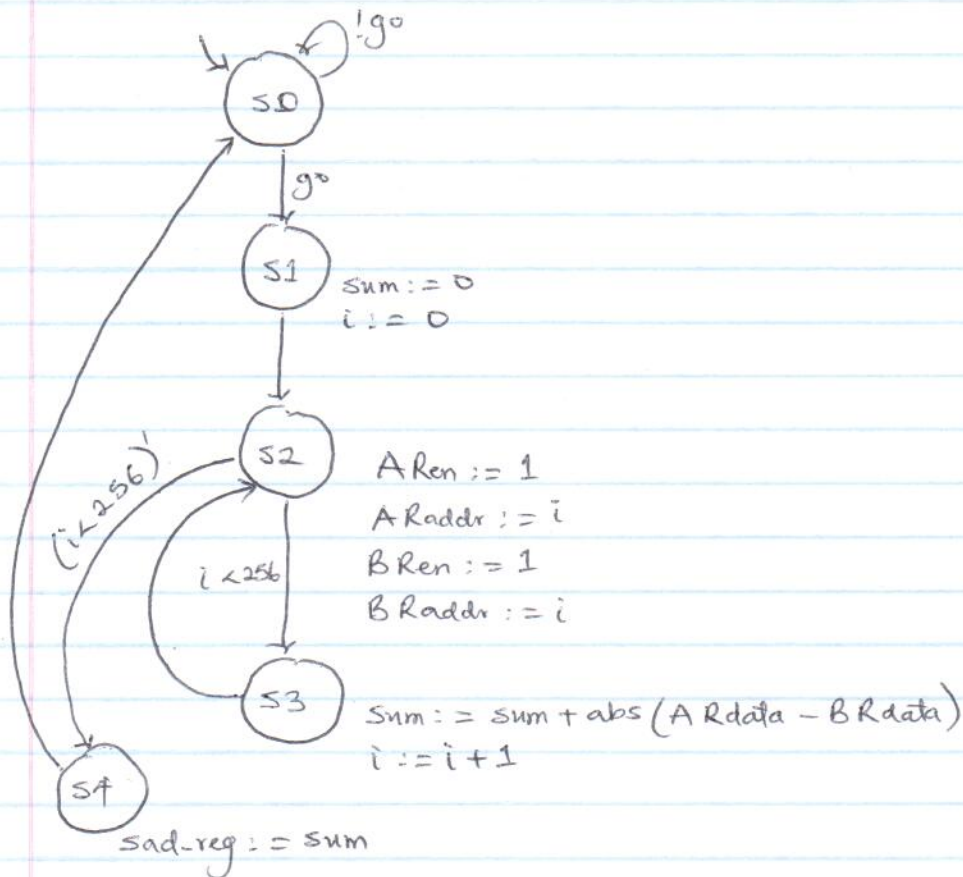 !go
S0
go
S1
sum := 0
i := 0
S2
A Ren := 1
A Raddr := i
B Ren := 1
B Raddr := i
(i<256)'
i<256
S3
Sum := sum + abs (A Rdata - B Rdata)
i := i + 1
S4
sad_reg := sum